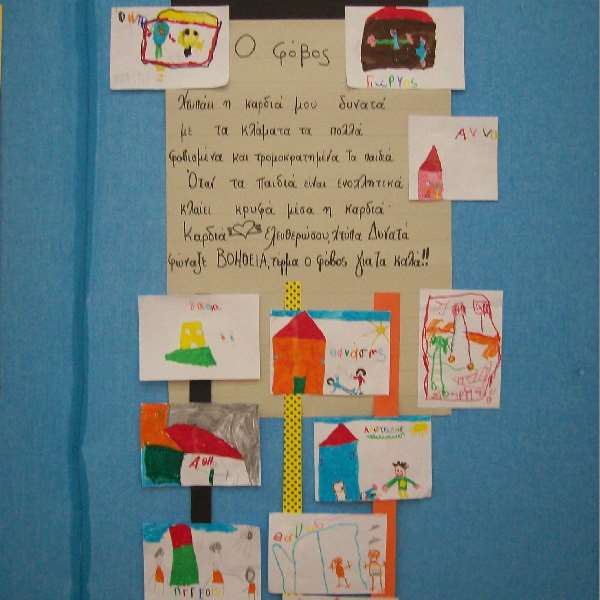 Ο φόβος
Γιώργος
Χτυπάει η καρδιά μου δυνατά
με τα κλάματα τα πολλά
φοβισμένα και τρομοκρατημένα τα παιδιά
Όταν τα παιδιά είναι ενοχλητικά
κλαίει κρυφά μέσα η καρδιά
Καρδιά ελευθερώσου, χτύπα Δυνατά
φώναξε ΒΟΗΘΕΙΑ, τερμα ο φόβος για τα καλά!!
ΑΝΝΑ
θανάσης